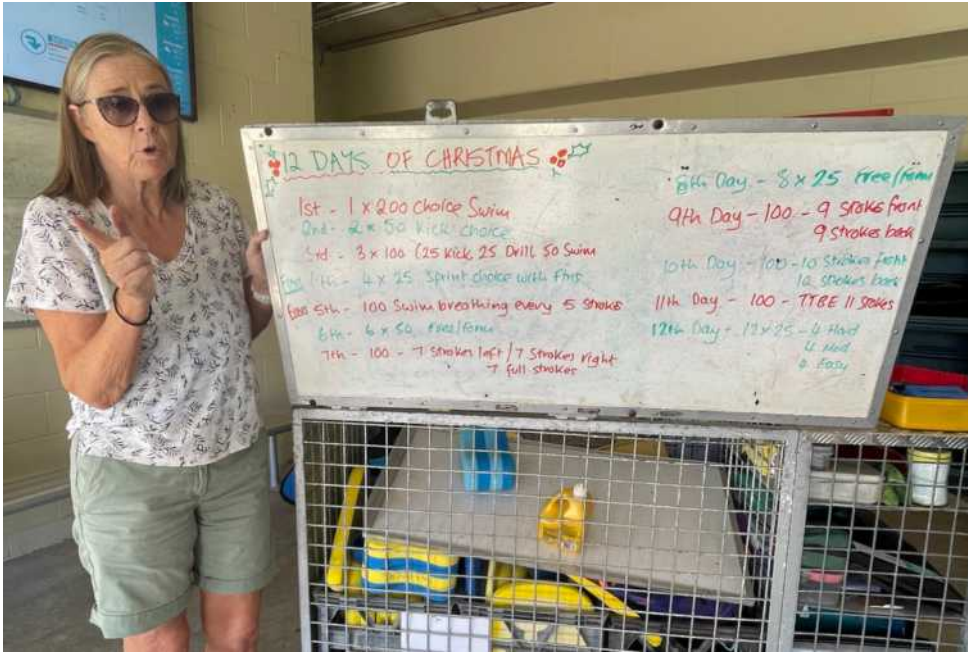 12 DAYS OF CHRISTMAS
1st - 1 x 200 choice Swim
2nd - 2 x 50 kick choice
3rd - 3 x 100 (25 kick, 25 Drill, 50 Swim
4th - 4 x 25 Sprint choice with fins
5th - 100 Swim breathing every 5 strokes
6th - 6 x 50 free/form
7th - 100 - 7 strokes left / 7 strokes right
7 full strokes
8th Day - 8 x 25 free/form
9th Day - 100 - 9 stroke front
9 strokes back
10th Day - 100 - 10 strokes front
10 strokes back
11th Day - 100 - TTBE 11 strokes
12th Day - 12 x 25 - 4 Hard
4 Med
4 Easy